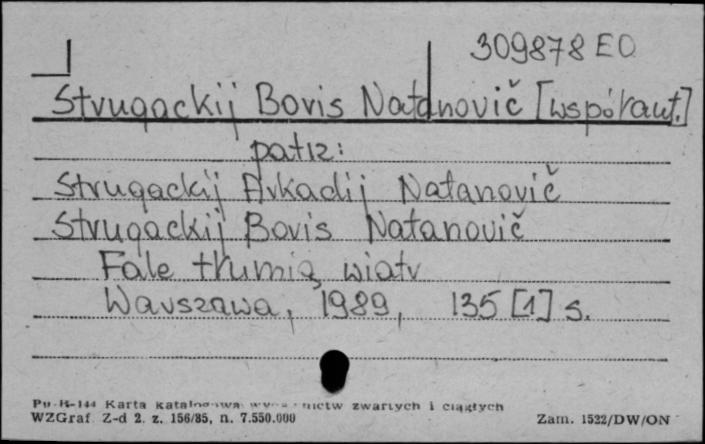 309878 EO
Strugackij Boris Natanovič [współaut.]
patrz:
Strugackij Arkadij Natanovič
Strugackij Boris Natanovič
Fale tłumią wiatr
Warszawa, 1989, 135 [1] s.
Pu-B-144 Karta katalogowa wydawnictw zwartych i ciągłych
WZGraf. Z-d 2. z. 156/85, n. 7.550.000
Zam. 1522/DW/ON